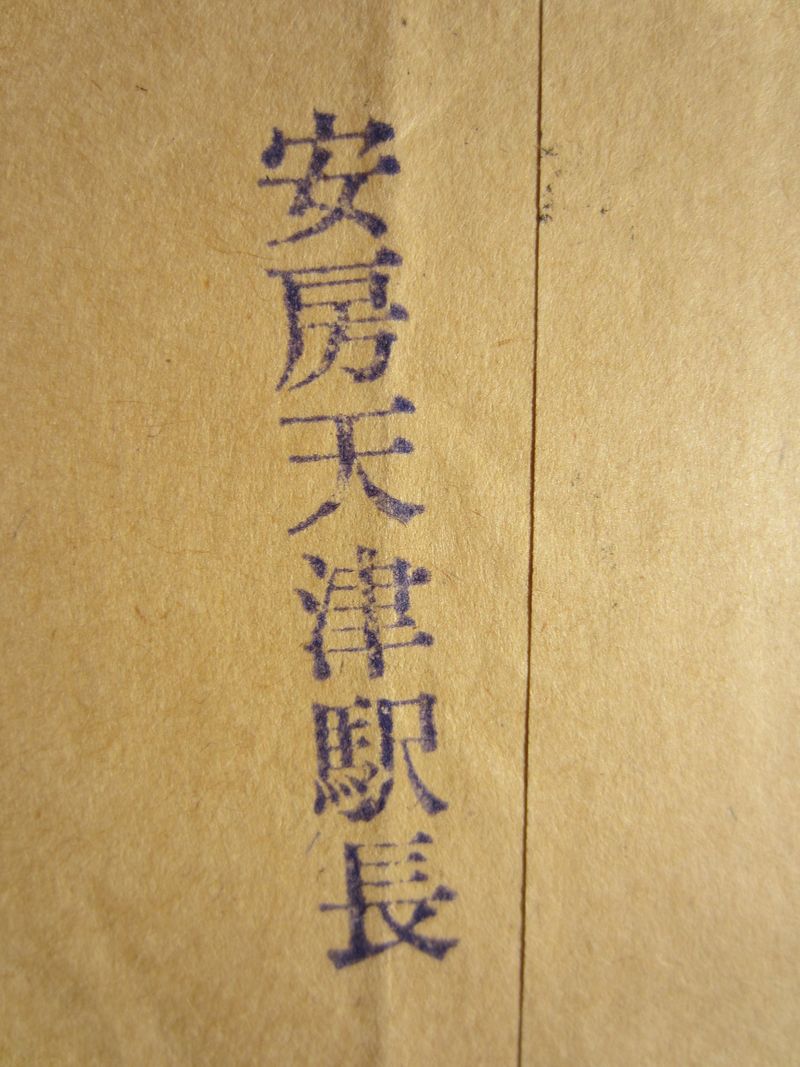 安房天津駅長